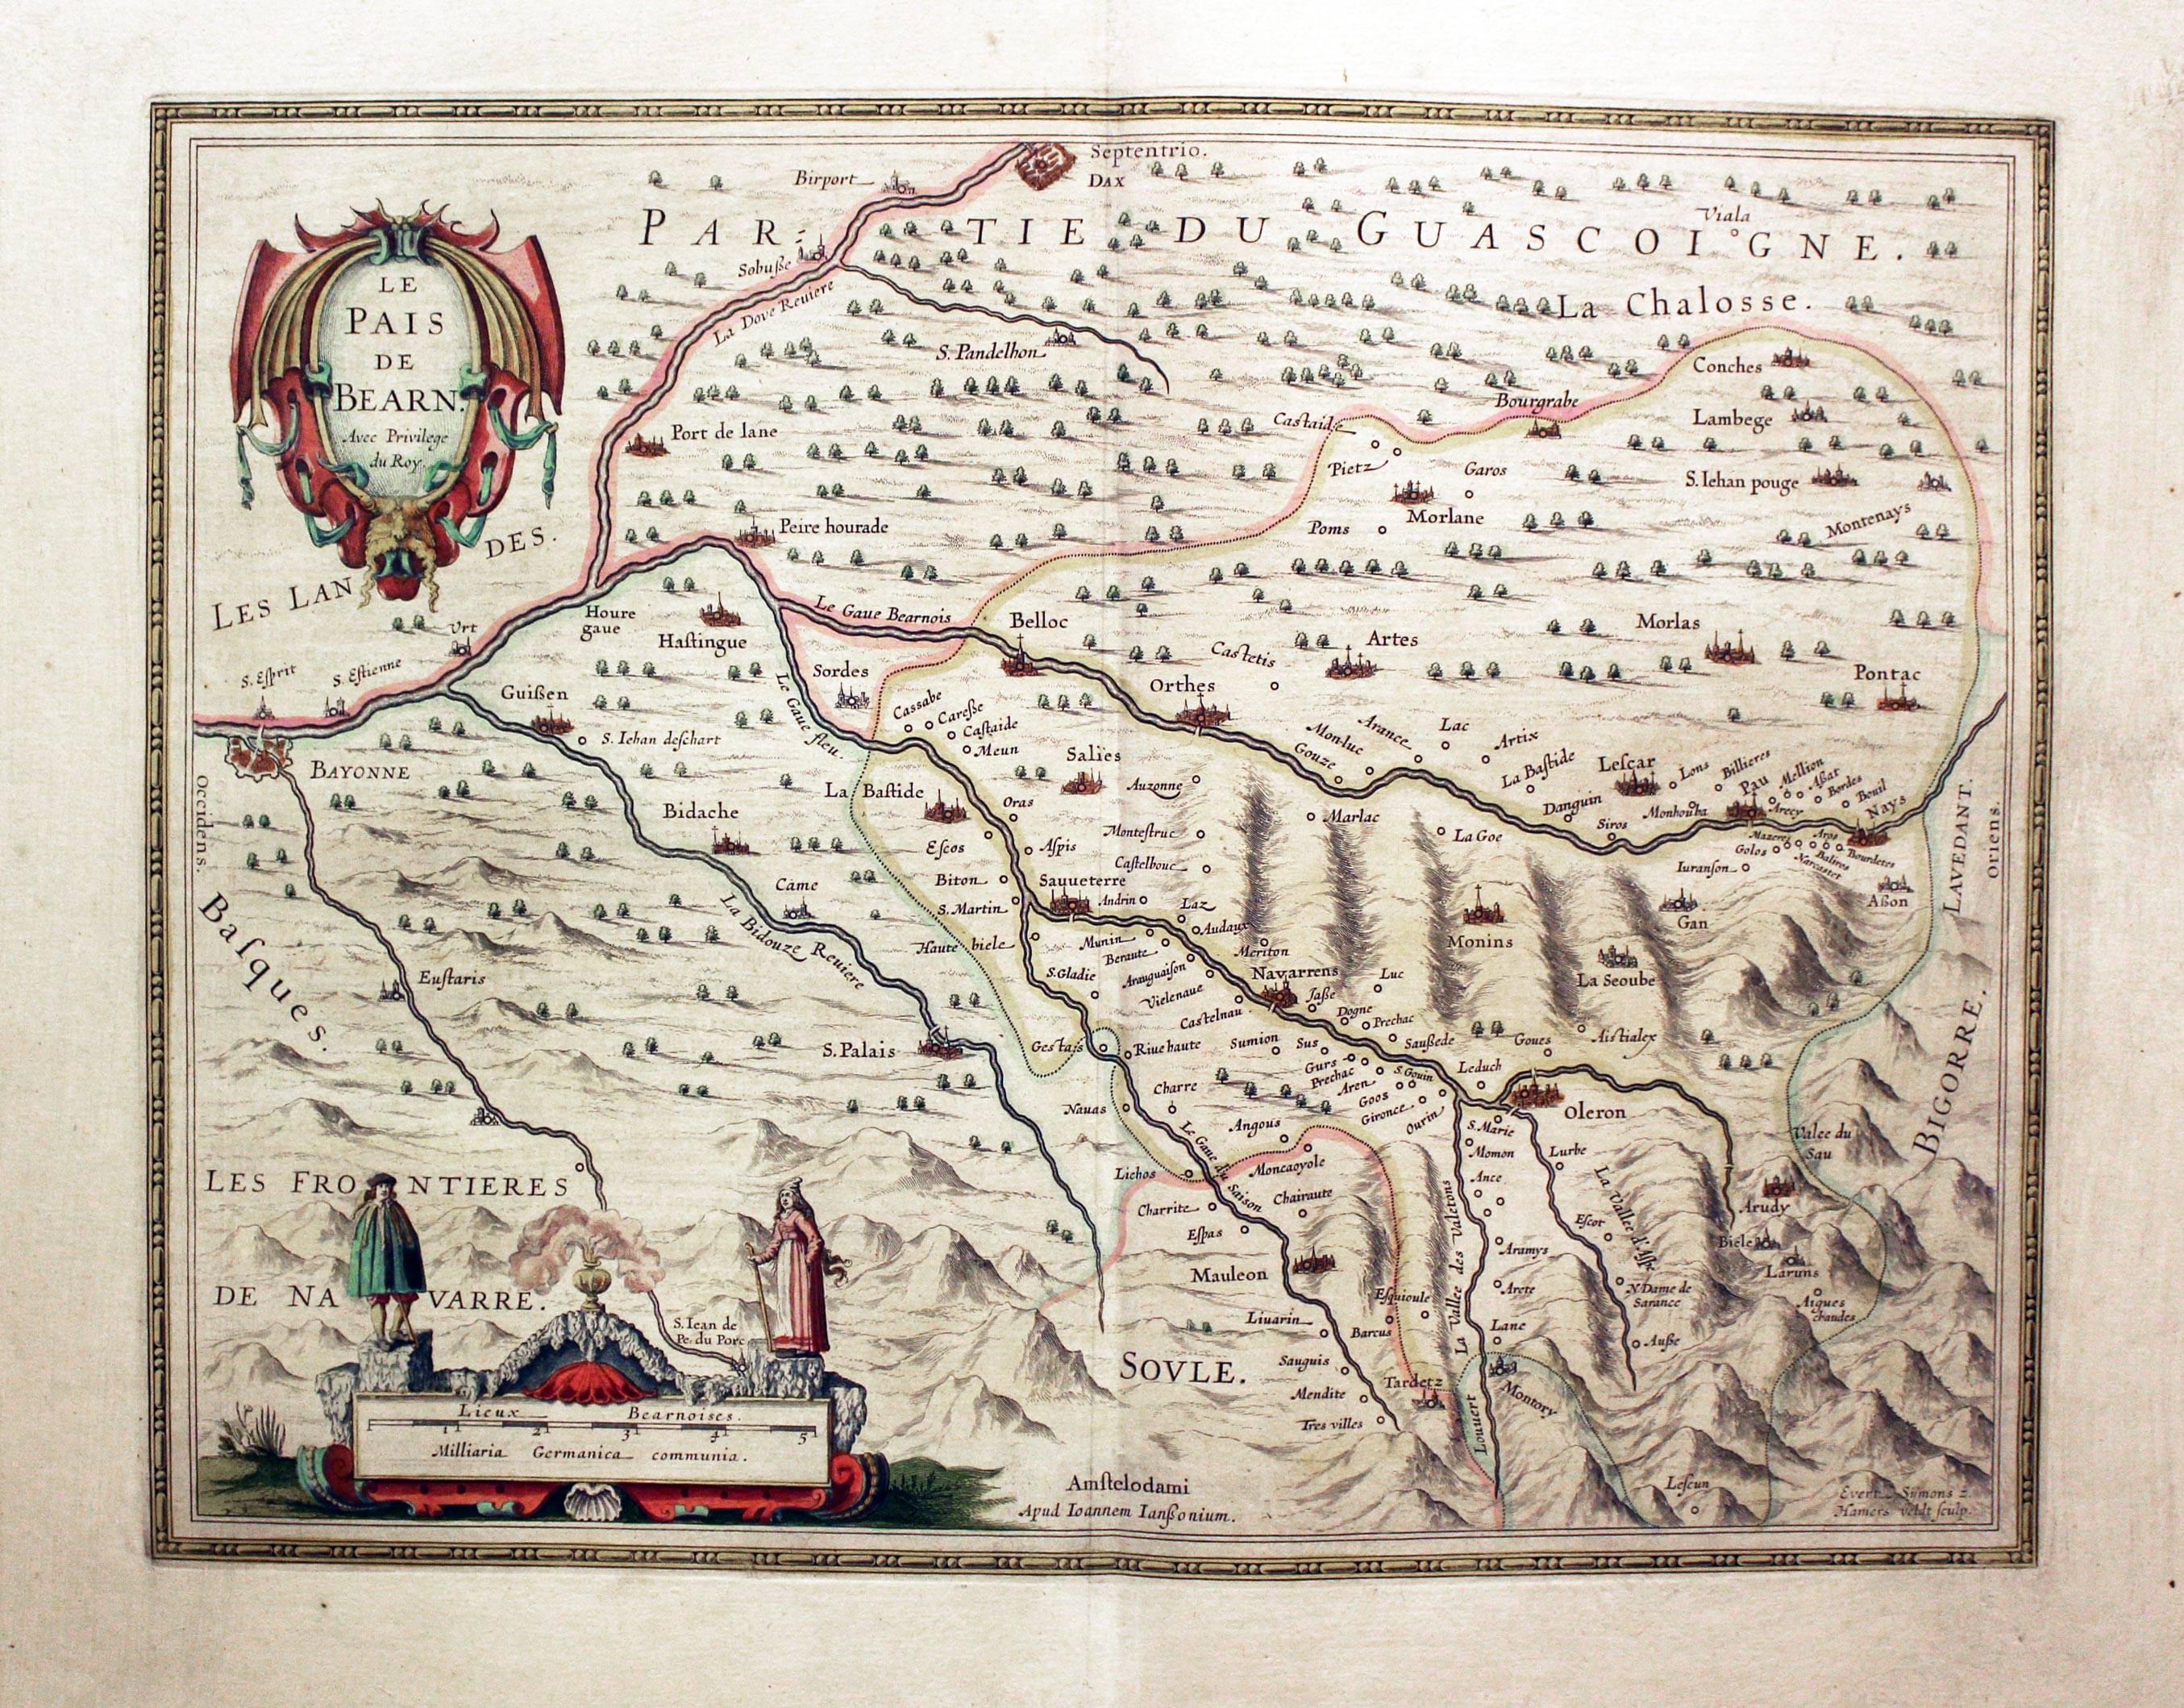 Septentrio.
DAX
Birport
PAR= TIE DU GUASCOIGNE.
Viala
Sobuſse
La Dove Reviere
La Chalosse.
LE
PAIS
DE
BEARN.
Avec Privilege
du Roy.
S. Pandelhon
Conches
Bourgrabe
Lambege
Castaide
Port de lane
Pietz
Garos
S. Iehan pouge
Morlane
Montenays
Peire hourade
Poms
LES LAN DES.
Houre
gaue
Le Gaue Bearnois
Belloc
Vrt
Haſtingue
Castetis
Artes
Morlas
S. Eſprit
S. Eſtienne
Sordes
Pontac
Guißen
Orthes
Le Gaue fleu.
Cassabe
Careſse
Caſtaide
Meun
S. Iehan deſchart
Mon-luc
Arance
Lac
Artix
Gouze
BAYONNE
Salies
La Baſtide
Leſcar
Lons
Billieres
Pau
Mellion
Aſſat
Bordes
Beuil
Nays
Occidens.
La Baſtide
Auzonne
Oras
Danguin
Monhouba
Arecy
Bidache
Marlac
La Goe
Siros
Monteſtruc
Mazeres
Aros
Golos
Baliros
Bourdetes
Narcastet
Eſcos
Aſpis
Caſtelbouc
Iuranſon
LAVEDANT.
Oriens.
Biton
Sauueterre
Came
Andrin
Laz
S. Martin
Aßon
Baſques.
La Bidouze Reuiere
Gan
Audaux
Monins
Haute biele
Munin
Berante
Meriton
Navarrens
Luc
La Seoube
Euſtaris
S. Gladie
Arauguaiſon
Vielenaue
Jaſse
Castelnau
Dogne
Prechac
BIGORRE.
S. Palais
Gestas
Riue haute
Sumion
Sus
Saußede
Goues
Aistialex
Gurs
Prechac
S. Gouin
Leduch
Charre
Aren
Goos
Nauas
Gironce
Ourin
Oleron
Angous
S. Marie
Valee du
Sau
Le Gaue du Saison
Momon
Lurbe
Lichos
Moncaoyole
LES FRONTIERES
DE NAVARRE.
Ance
Charrite
Chairaute
La Vallee d'Aſſe
Arudy
Eſpas
Eſcot
Biele
Aramys
Laruns
Mauleon
La Vallee des Valetons
Arete
N. Dame de
Sarance
Aigues
chaudes
Eſquioule
S. Iean de
Pe. du Porc
Liuarin
Barcus
Lane
Auſſe
SOVLE.
Sauguis
Tardetz
Montory
Mendite
Louuert
Tres villes
Lieux Bearnoises.
1 2 3 4 5
Milliaria Germanica communia.
Amſtelodami
Apud Ioannem Ianßonium.
Leſcun
Evert Sÿmons z.
Hamers veldt ſculp.